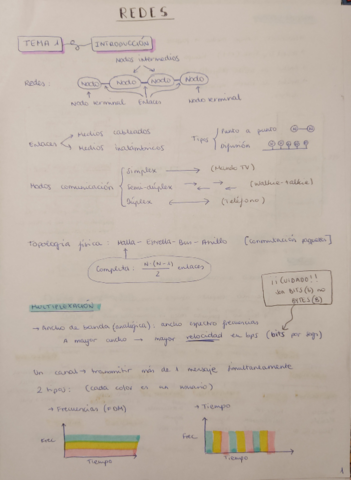 REDES
TEMA 1 INTRODUCCIÓN
Nodos intermedios
Redes: Nodo Nodo Nodo Nodo
Nodo terminal Enlaces Nodo terminal
Enlaces Medios cableados
Medios inalámbricos
Tipos Punto a punto
Difusión
Modos comunicación Simplex (Mando TV)
Semi-dúplex (Walkie-talkie)
Dúplex (Teléfono)
Topología física: Malla - Estrella - Bus - Anillo [conmutación paquetes]
Completa: N·(N-1)/2 enlaces
¡¡CUIDADO!!
en BITS(b) no
BYTES(B)
MULTIPLEXACIÓN:
→ Ancho de banda (analógica): ancho espectro frecuencias
A mayor ancho → mayor velocidad en bps (bits por seg)
Un canal → transmitir más de 1 mensaje simultáneamente
2 tipos: (cada color es un usuario)
→ Frecuencias (FDM) → Tiempo
Frec.
Tiempo
Frec.
Tiempo
1